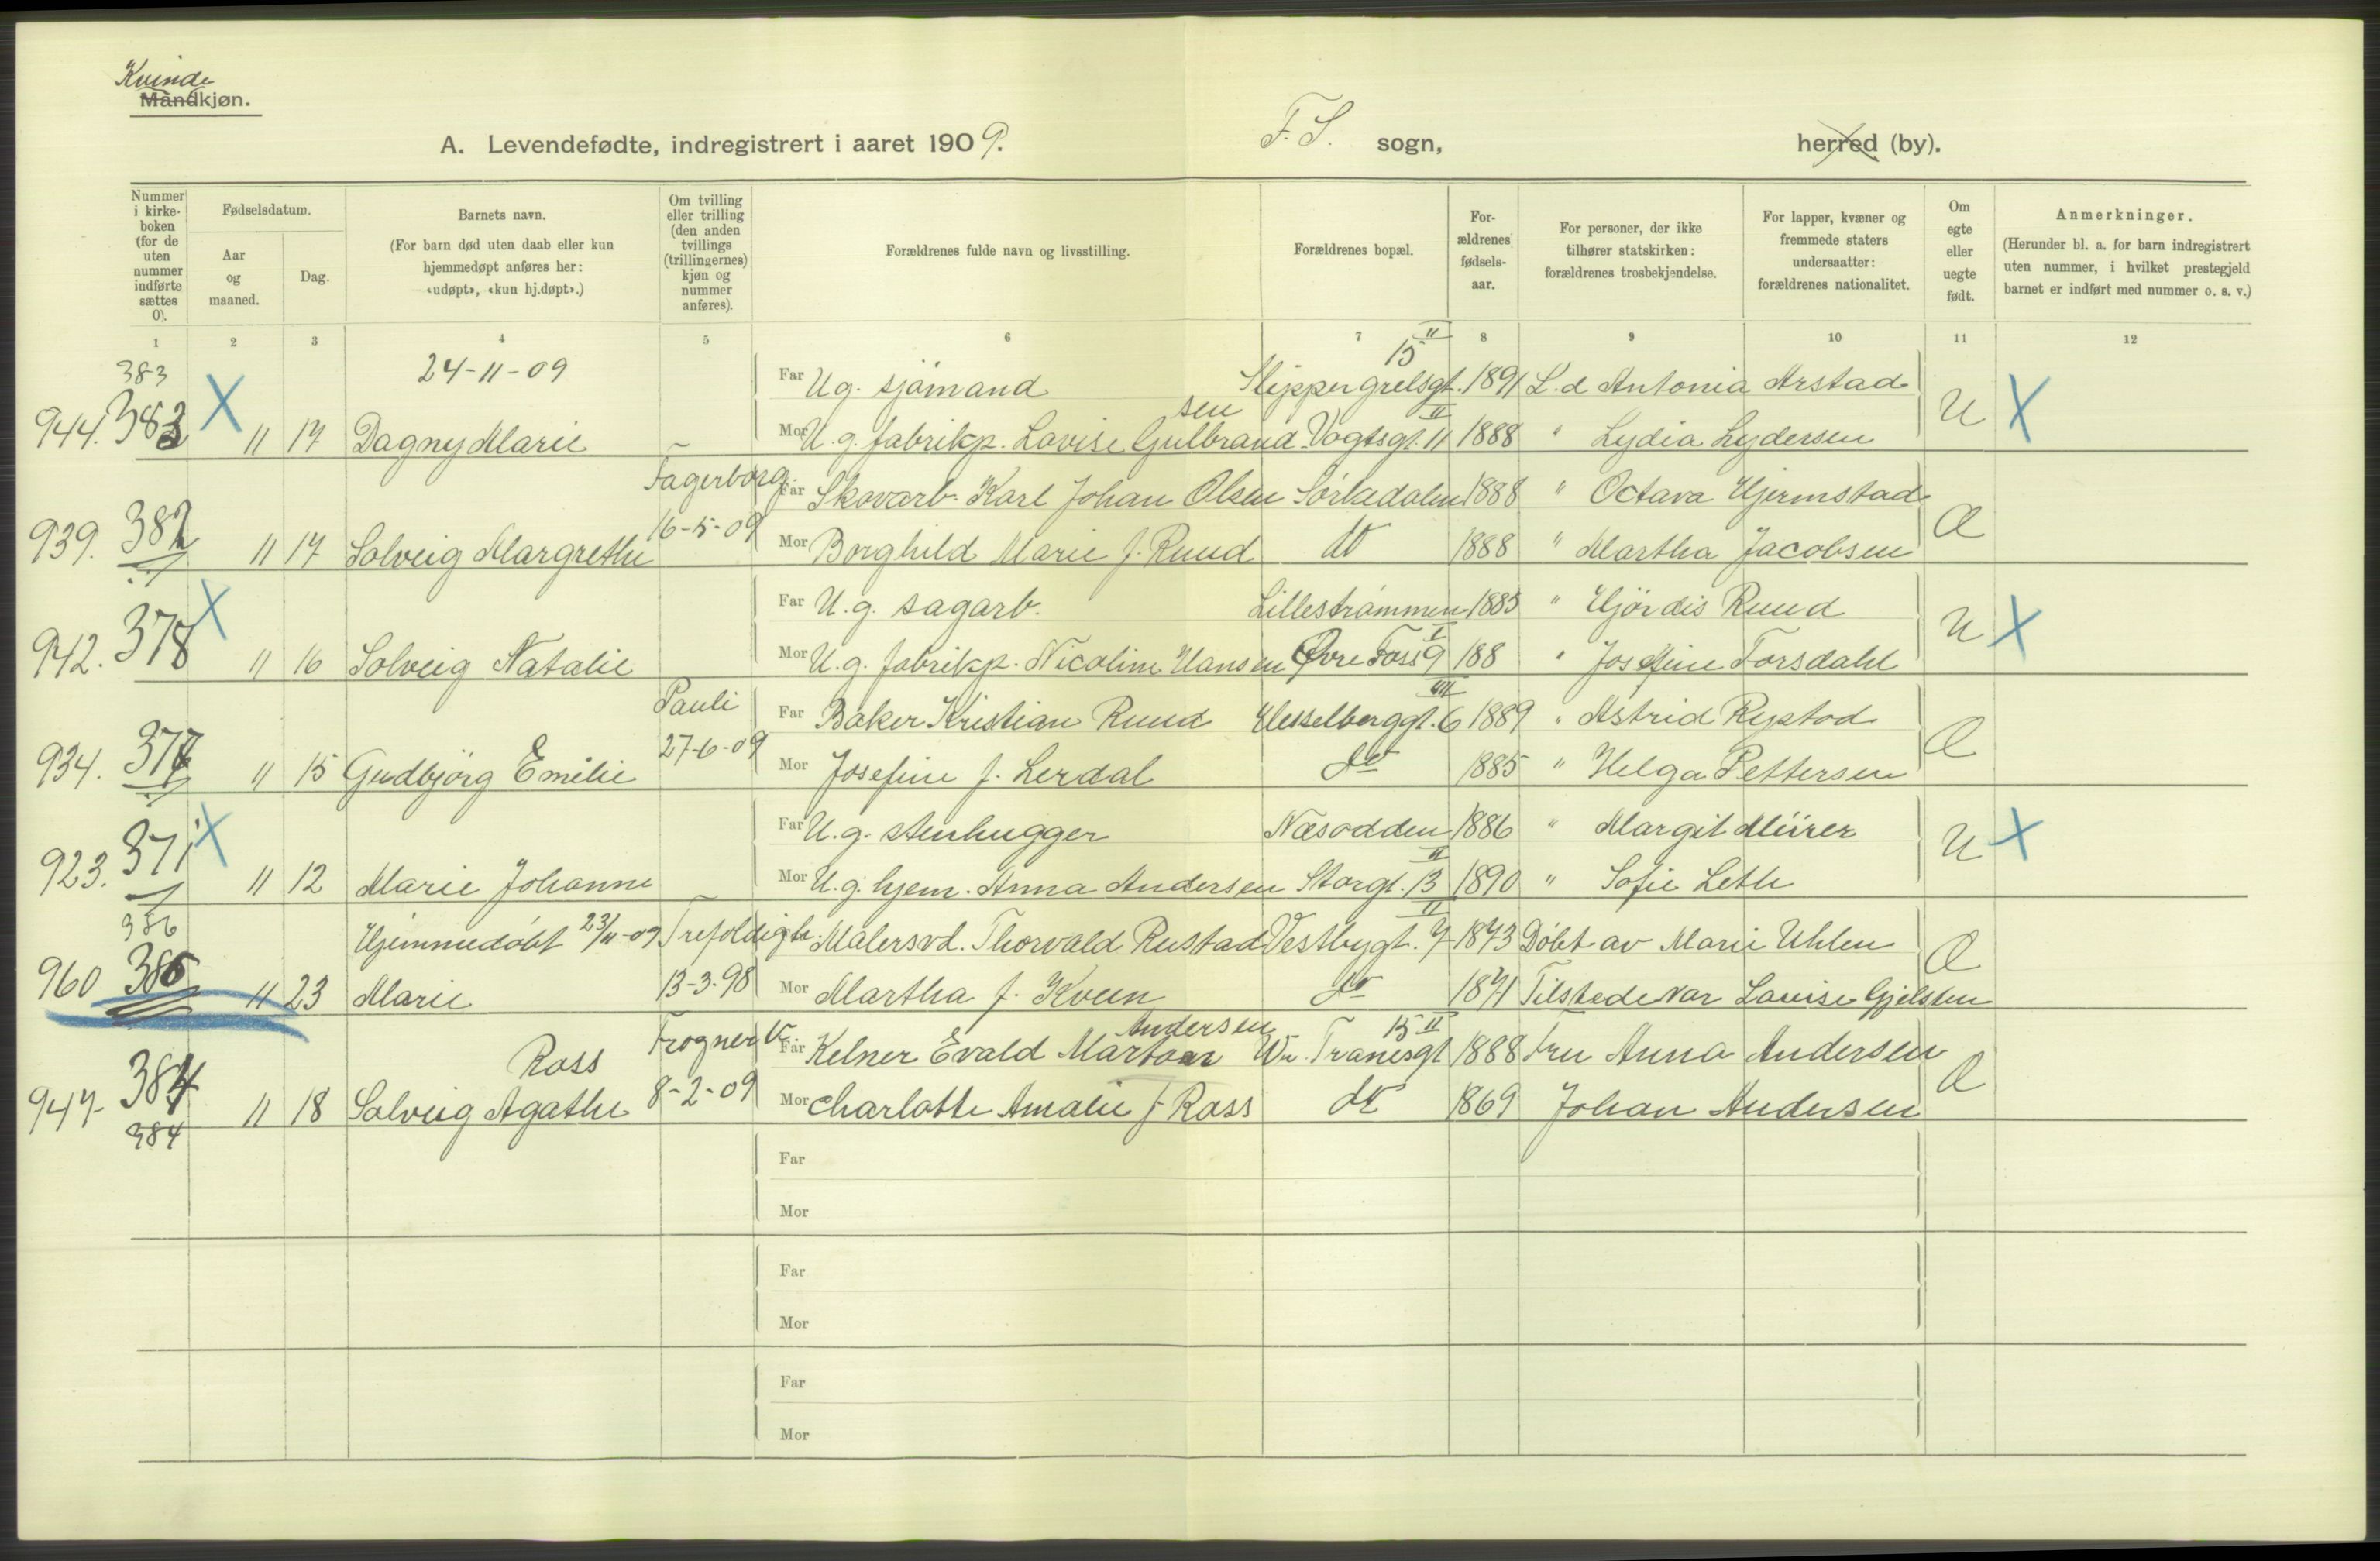 Kvinde
Mandkjøn.
A. Levendefødte, indregistrert i aaret 1909. F. S. sogn, herred (by).
Nummer i kirke-boken (for de uten nummer indførte sættes 0).
Fødselsdatum.
Aar og maaned.
Dag.
Barnets navn.
(For barn død uten daab eller kun hjemmedøpt anføres her: «udøpt», «kun hj.døpt».)
Om tvilling eller trilling (den anden tvillings (trillingernes) kjøn og nummer anføres).
Forældrenes fulde navn og livsstilling.
Forældrenes bopæl.
For-ældrenes fødsels-aar.
For personer, der ikke tilhører statskirken: forældrenes trosbekjendelse.
For lapper, kvæner og fremmede staters undersaatter: forældrenes nationalitet.
Om egte eller uegte født.
Anmerkninger.
(Herunder bl. a. for barn indregistrert uten nummer, i hvilket prestegjeld barnet er indført med nummer o. s. v.)
1 2 3 4 5 6 7 8 9 10 11 12
383 X 24-11-09 Far Ug. sjømand 15 II 1891 L. d Antonia Arstad
944. 383 " 17 Dagny Marie – Mor U. g. fabrikp. Lovise Gulbrandsen Vogtsgt. 11 II 1888 " Lydia Lydersen U X
Fagerborg Far Skovarb. Karl Johan Olsen Sørkedalen 1888 " Octava Hjermstad
939. 382 " 17 Solveig Margrethe 16-5-09 Mor Borghild Marie f. Ruud do 1888 " Martha Jacobsen Æ
X Far U. g. sagarb. Lillestrømmen 1885 " Hjørdis Ruud
942. 378 " 16 Solveig Natalie Mor U. g. fabrikp. Nicoline Hansen Øvre Foss 9 I 188 " Josefine Forsdahl U X
Pauli Far Baker Kristian Ruud Hesselberggt. 6 III 1889 " Astrid Rystad
934. 377 " 15 Gudbjørg Emilie 27-6-09 Mor Josefine f. Lerdal do 1885 " Helga Pettersen Æ
X Far U. g. stenhugger Næsodden 1886 " Margit Mürer
923. 371 " 12 Marie Johanne Mor U. g. hjem. Anna Andersen Storgt. 13 II 1890 " Sofie Leth U X
386 Hjemmedøbt 23/11-09 Trefoldigh. Malersvd. Thorvald Rustad Vestbygt. 7 II 1873 Døbt av Marie Uhlen
960 386 " 23 Marie 13-3-98 Mor Martha f. Kveen do 1871 Tilstede var Lovise Gjelsten Æ
Frogner V. Far Kelner Evald Marton Andersen W. Tranesgt 15 II 1888 Fru Anna Andersen
Ross
947 384 " 18 Solveig Agathe 8-2-09 Mor Charlotte Amalie f Ross do 1869 Johan Andersen Æ
384
Far
Mor
Far
Mor
Far
Mor